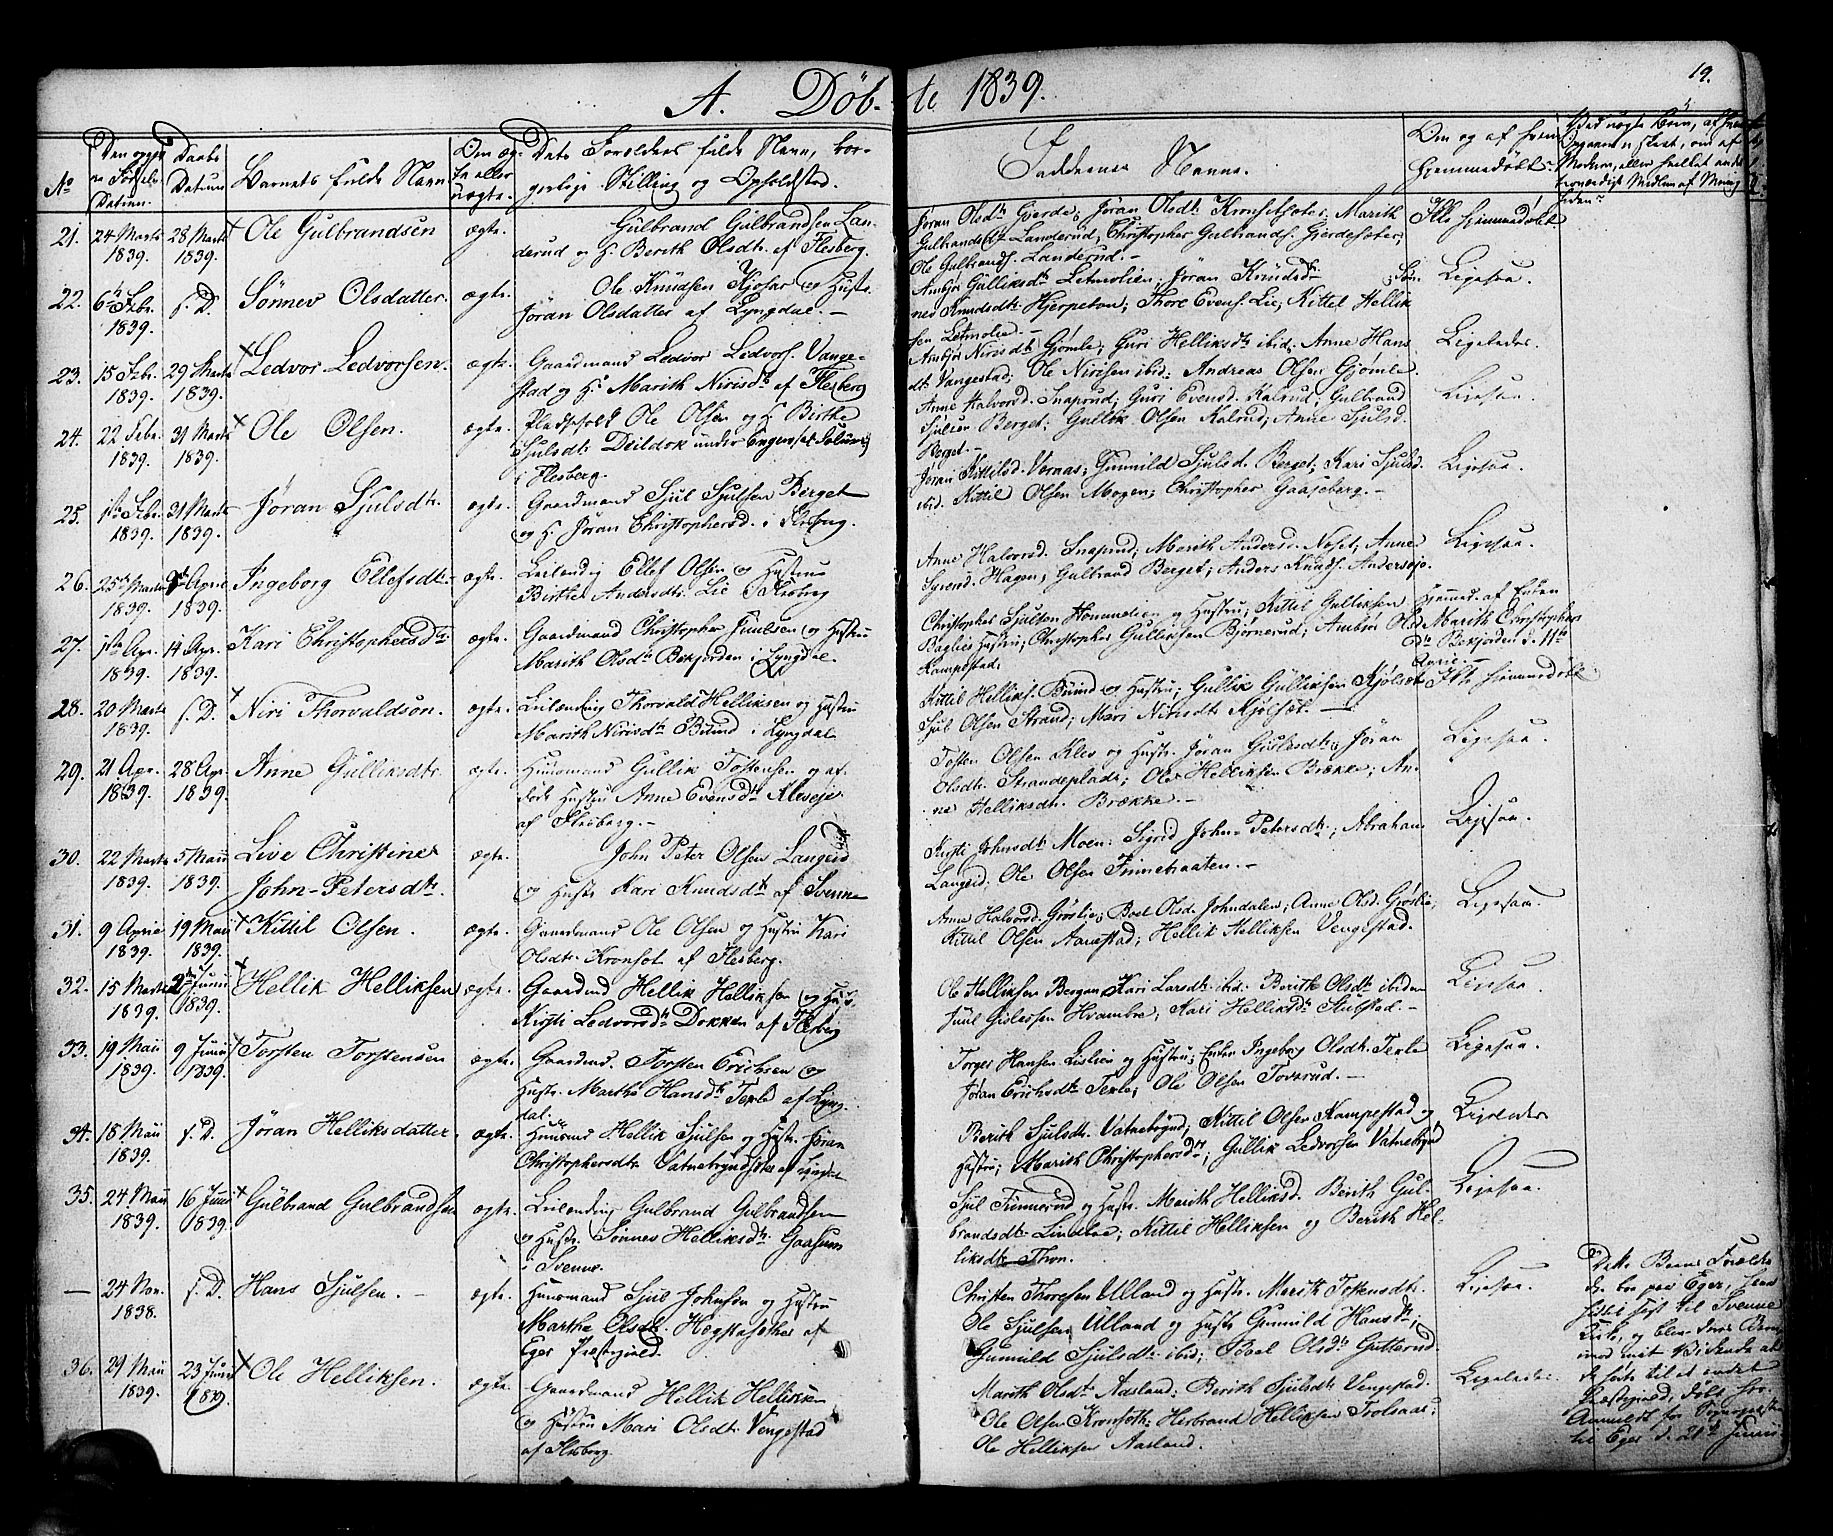 A. Döb-te 1839.
19.
No
Barnets fulde Navn
Datum
Faddernes Navne.
21. 24 Marts 1839. 28 Marts 1839. Ole Gulbrandsen ægte. Gulbrand Gulbrandsen Lan-
derud og H. Berith Olsdtr. af Flesberg.
Jöran Olsdtr Gjerde; Jöran Olsdtr Kronsetsæter; Marith
Gulbrandsdtr Landerud; Christopher Gulbrands. Gjerdesæter;
Ole Gulbrands. Landerud.-
Ikke hjemmedöbt.
22. 6te Febr. 1839. s. D. Sönnev Olsdatter ægte. Ole Knudsen Kjosar og Hustr.
Jöran Olsdatter af Lyngdal.-
Ambjör Gulliksdtr Letmolien; Jöran Knudsdtr Sön-
nev Knudsdtr Hjerpebon; Thore Evens. Lie; Kittel Hellik
sen Letmolie.-
Ligesaa.
23. 15 Febr. 1839. 29 Marts 1839. Ledvor Ledvorsen. ægte. Gaardmand Ledvor Ledvors. Vange-
stad og H. Marith Nirisdtr af Flesberg
Ambjör Nirisdtr Gjömle; Guri Helliksdtr ibid; Anne Hans
dtr Vangestad; Ole Nirisen ibid; Andreas Olsen Gjömle
Ligeledes.
24. 22 Febr. 1839. 31 Marts 1839. Ole Olsen. ægte. Pladsfolk Ole Olsen og H. Birthe
Sjulsdtr Deildok under
i Flesberg.
Anne Halvorsd. Snaprud; Guri Evensd. Kalrud; Gulbrand
Sjulsen Berget; Gullik Olsen Kalrud; Anne Sjulsd.
Berget.-
Ligesaa.
25. 1ste Febr. 1839. 31 Marts 1839. Jöran Sjulsdtr. ægte. Gaardmand Sjul Sjulsen Berget
og H. Jöran Christophersd. i Flesberg.
Jöran Kittilsd. Vornæs; Gunnild Sjulsd. Berget; Kari Sjulsd.
ibid. Kittil Olsen Mogen; Christopher Gaaseberg.-
Ligesaa.
26. 25de Marts 1839. April 1839. Ingeborg Ellefsdtr. ægte. Leilending Ellef Olsen og Hustrue
Birthe Andersdtr. Lie i Flesberg
Anne Halvorsd. Snaprud; Marith Andersd. Noset; Anne
Syvend. Hagen; Gulbrand Berget; Anders Knuds. Andersöjo.
Ligesaa.
27. 1ste Apr. 1839. 14 Apr. 1839. Kari Christophersdtr. ægte. Gaardmand Christopher Juulsen og Hustru
Marith Olsdtr Bekjorden i Lyngdal.
Christopher Sjulsen Hommelien og Hustru; Kittil Gulliksen
Baglies Hustru; Christopher Gulliksen Björnerud; Ambjör Olsd.
Kampestad.
Hjemmed. af Enken
Marith Christophers
dtr Bekjorden d. 11te
April.-
28. 20 Marts 1839. s. D. Niri Thorvaldsön. ægte. Leilænding Thorvald Helliksen og Hustr
Marith Nirisdtr Büind i Lyngdal
Kittil Helliks. Büind og Hustru; Gullik Gulliksen Kjölset
Sjul Olsen Strand; Mari Nirisdtr Kjölset.-
Ikke hjemmedöbt
29. 21 Apr. 1839. 28 Apr. 1839. Anne Gulliksdtr. ægte. Huusmand Gullik Tostensen og af-
döde Hustru Anne Evensdtr Klevöje
af Flesberg.-
Tosten Olsen Klev og Hustr. Jöran Gislesdtr; Jöran
Olsdtr. Strandeplads; Ole Helliksen Brække; An-
ne Helliksdtr. Brække.-
Ligesaa.
30. 22 Marts 1839. 5 Maii 1839. Live Christine
John-Petersdtr. ægte. John Peter Olsen Langeid
og Hustr Kari Knudsdtr af Svenne
Kirsti Johnsdtr Moen; Sigrid John-Petersdtr; Abraham
Langeid; Ole Olsen Finnebraaten.-
Ligesaa.
31. 9 April 1839. 19 Maii 1839. Kittil Olsen. ægte. Gaardmand Ole Olsen og Hustru Kari
Olsdtr. Kronset af Flesberg.
Anne Halvorsd. Gröslie; Boel Olsd. Johndalen; Anne Olsd. Gröslie;
Kittil Olsen Aarestad; Hellik Helliksen Vengestad.
Ligesaa.
32. 15 Marts 1839. 2den Junii 1839. Hellik Helliksen ægte. Gaardmd Hellik Helliksen og Hust.
Kirsti Ledvorsdtr Dokken af Flesberg
Ole Helliksen Bergan; Kari Larsdtr ibid. Berith Olsdtr ibidem
Juul Gislesen Hvambe; Kari Helliksdtr Stubstad.-
Ligesaa.
33. 19 Maii 1839. 9 Junii 1839. Torsten Torstensen ægte. Gaardmd. Torsten Erichsen og
Hustr. Marthe Hansdtr Terle af Lyng-
dal.
Torger Hansen Lislien og Hustru; Enken Ingeborg Olsdtr. Terle
Jöran Erichsdtr Terle; Ole Olsen Tovsrud.-
Ligesaa.
34. 18 Maii 1839. s. D. Jöran Helliksdatter ægte. Huusmd Hellik Sjulsen og Hustr. Jöran
Christophersdtr. af Lyngdal
Berith Sjulsdtr. Vatnebrynd; Kittil Olsen Kampestad og
Hustru; Marith Christophersdtr; Gullik Ledvorsen Vatnebrynd
Ligeledes
35. 24 Maii 1839. 16 Junii 1839. Gulbrand Gulbrandsen ægte. Leilænding Gulbrand Gulbrandsen
og Hustr. Sönnev Helliksdtr Gaasum
i Svenne.
Sjul Finnerud og Hustr. Marith Helliksd. Berith Gul-
brandsdtr. Lindboe; Kittil Helliksen og Berith Hel-
liksdtr Thon.
Ligesaa.
— 24 Nov. 1838. s. D. Hans Sjulsen.- ægte. Huusmand Sjul Johnsön og Hustru
Marthe Olsdtr. Hegstasether af
Eger Præstegield.
Christen Thoresen Ulland og Hustr. Marith Torkensdtr.
Ole Sjulsen Ulland og Hustr Gunnild Hansdtr;
Gunnild Sjulsdtr ibid; Boel Olsdtr Gutterud.
Ligesaa.
Dette Barns Foreldre
boe paa Eger,
til Svenne
Kirke, og blev deres Barn
at
de hörte til et andet
Præstegield, döbt her.
Anmeldt for Sognepræsten
til Eger d. 21de Junii
36. 29 Maii 1839. 23 Junii 1839. Ole Helliksen. ægte. Gaardmand Hellik Helliksen
og Hustru Mari Olsdtr. Vengestad
af Flesberg.
Marith Olsdtr Aasland; Berith Sjulsdtr. Vengestad.
Ole Olsen Kronseth; Herbrand Helliksen Trolsaas;
Ole Helliksen Aasland.
Ligeledes.